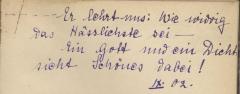 Er lehrt uns: Wie widrig
das Hässlichste sei —
Ein Gott und ein Dichter
sieht Schönes dabei!